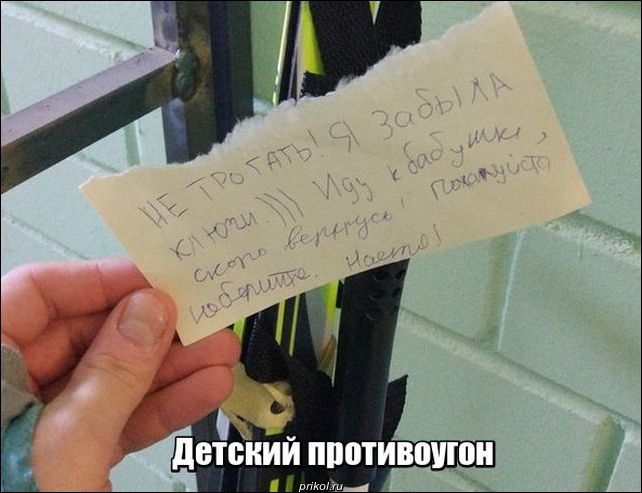 НЕ ТРОГАТЬ! Я ЗАБЫЛА
КЛЮЧИ.))) Иду к бабушке,
скоро вернусь! Пожалуйста
не берите. Настя!
Детский противоугон
prikol.ru